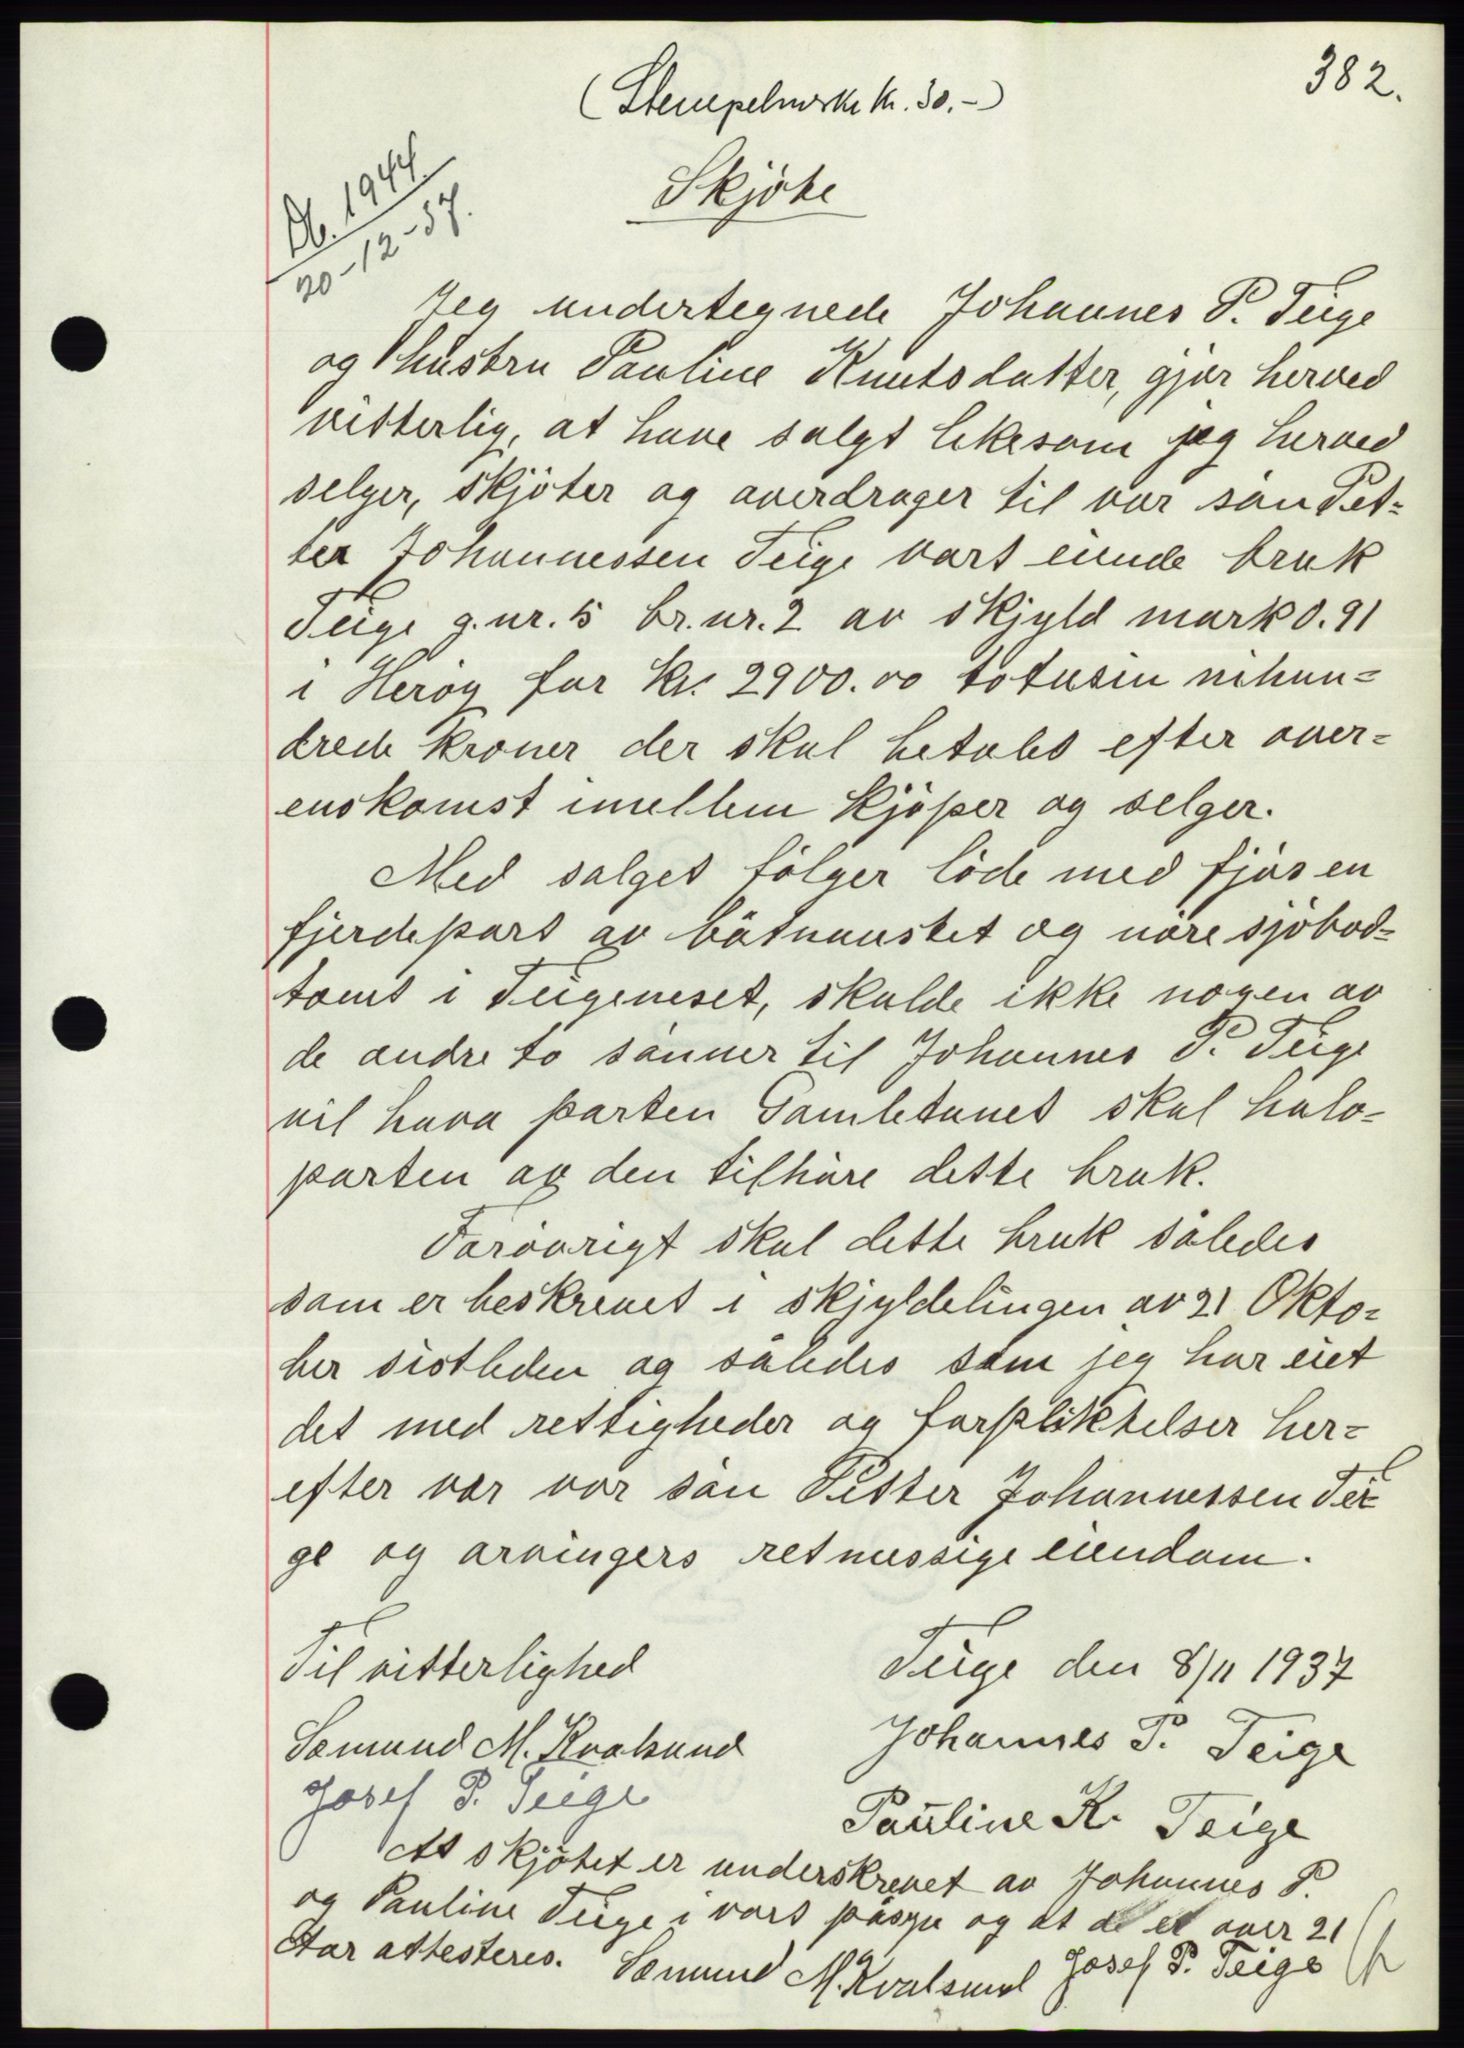 382.
(Stempelmerke kr. 30.-)
Skjöte
Db. 1944.
20-12-37.
Jeg undertegnede Johannes P. Teige
og hustru Pauline Knutsdatter, gjør herved
vitterlig, at have solgt likesom jeg herved
selger, skjöter og overdrager til vor sön Pet=
ter Johannessen Teige vort eiende bruk
Teige g.nr. 5 br.nr. 2 av skjyld mark 0.91
i Heröy for kr. 2900.00 totusin nihun=
drede kroner der skal betales efter over=
enskomst imellem kjöper og selger.
Med salget fölger löde med fjös en
fjerdepart av båtnaustet og nöre sjöbod=
tomt i Teigeneset, skulde ikke nogen av
de andre to sönner til Johannes P. Teige
vil hava parten Gamletunet skal halv=
parten av den tilhöre dette bruk.
Forövrigt skal dette bruk således
som er beskrevet i skjyldelingen av 21 Okto=
ber sistleden og således som jeg har eiet
det med rettigheder og forpliktelser her=
efter vær vor sön Petter Johannessen Tei=
ge og arvingers retmessige eiendom.
Til vitterlighed
Teige den 8/11 1937
Semund M. Kvalsund
Johannes P. Teige
Josef P. Teige
Pauline K. Teige
At skjötet er underskrevet av Johannes P.
og Pauline Teige i vort påsyn og at de er over 21
Aar attesteres. Semund M. Kvalsund Josef P. Teige